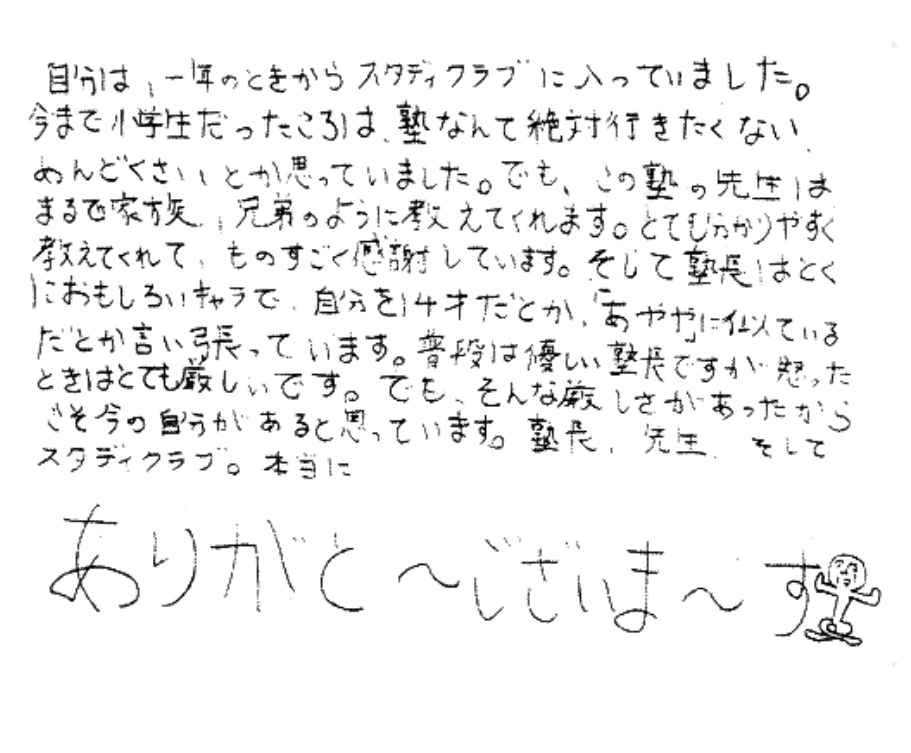 自分は、一年のときからスタディクラブに入っていました。
今まで小学生だったころは、塾なんて絶対行きたくない、
めんどくさいとか思っていました。でも、この塾の先生は
まるで家族、兄弟のように教えてくれます。とてもわかりやすく
教えてくれて、ものすごく感謝しています。そして塾長はとく
におもしろいキャラで、自分を14才だとか、「あやや」に似ている
だとか言い張っています。普段は優しい塾長ですが怒った
ときはとても厳しいです。でも、そんな厳しさがあったから
こそ今の自分があると思っています。塾長、先生、そして
スタディクラブ。本当に
ありがと〜ございま〜す